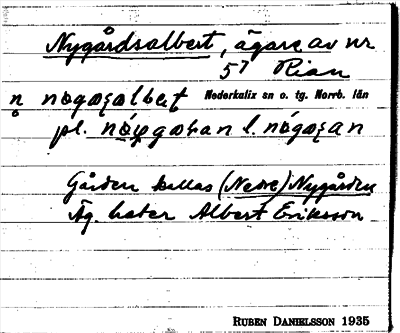 Nygårdsalbert, ägare av nr
57 Rian
Nederkalix sn o. tg. Norrb. län
pl. l.
Gården kallas (Nedre) Nygården
Äg. heter Albert Eriksson
RUBEN DANIELSSON 1935